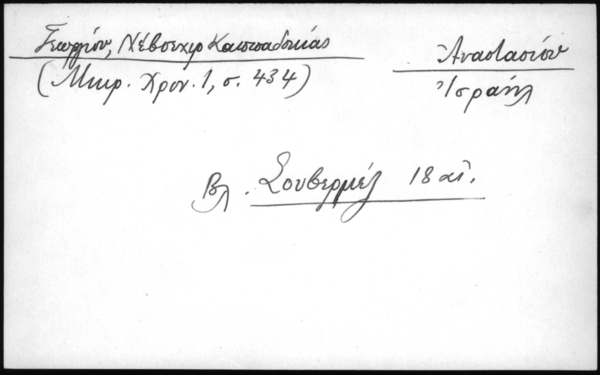 Γεωργίου, Νέβσεχιρ Καππαδοκίας
(Μικρ. Χρον. 1, σ. 434)
Ἀναστασίου
Ἰσραήλ
Βλ. Σουβερμέζ 18 αἰ.